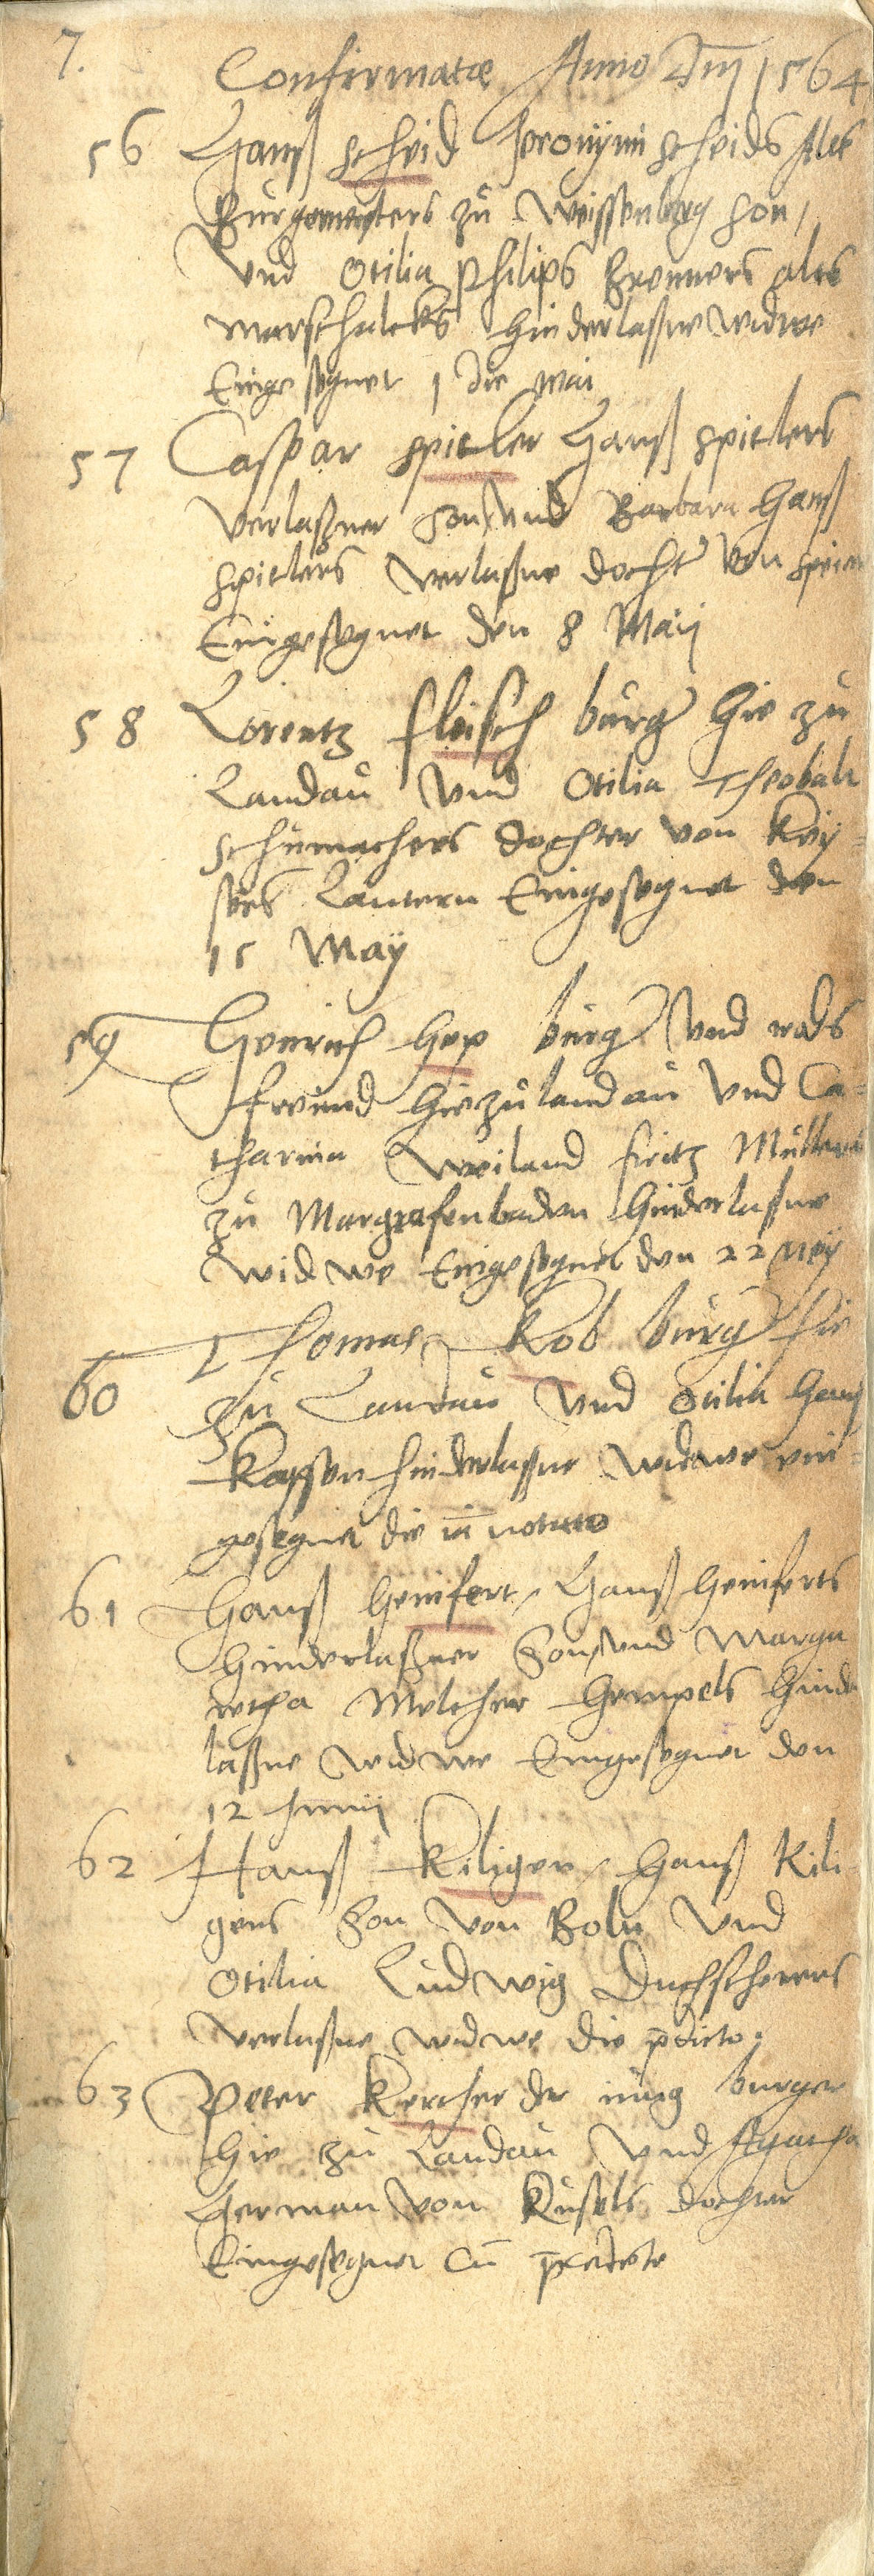 7.
Confirmatæ Anno Dm̄ 1564
56 Hanß scheid Jeronÿmi scheids Altes
Burgemeisters zů Weissenburg son,
Vnd Otilia Philips Brenners altes
marschalcks hinderlaßne widwe
Eingesegnet 1 die Mai
57 Caspar spitler Hanß spitlers
Verlaßner son, Vnd Barbara Hanß
spitlers verlaßne docht von speier
Eingesegnet den 8 Maij
58 Lorentz fleisch burg hie zů
Landaů Vnd Otilia Theobalt
schůmachers dochter von Keÿ=
sers Lautern Eingesegnet den
15 Maÿ
59 Henrich hep bůrg Vnd rads
freund hie zů landaů Vnd Ca=
tharina Weiland fritz Můllers
zů Margrafenbaden hinderlaßne
widwe Eingesegnet den 22 Meÿ
60 Thomas Kob bůrg hie
zů Landaů Vnd Otilia Hanß
Kaysen hinderlaßne widwe ein=
gesegnet die
61 Hanß Henifert, Hanß Heniferts
hinderlaßner Son, vnd Marga
retha Melcher Hempels hinder
laßne widwe Eingesegnet den
12 Junij
62 Hanß Kiliger, Hanß Kili
gers Son von Boln Vnd
Otilia Ludwig Duchscherers
verlaßne widwe die p̄dicto.
63 Peter Kercher der iung burger
hie zů Landaů Vnd Agatha
German von Kůsels dochter
Eingesegnet cū